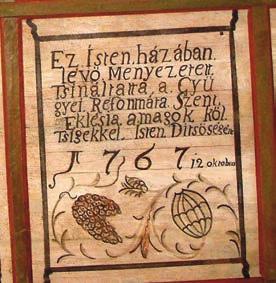 Ez Isten. házában.
levö. Menyezetett.
Tsináltatta, a. Gyü
gyei. Reformára. Szent,
Eklésia. amagok köl
tsigekkel. Isten. Ditsöségére
1767. 12 oktobris